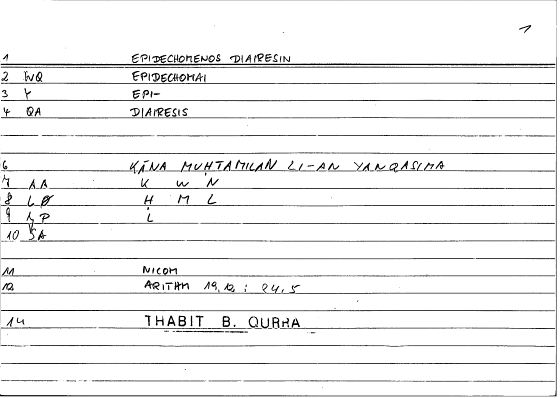 1
1 EPIDECHOMENOS DIAIRESIN
2 WQ EPIDECHOMAI
3 Y EPI-
4 QA DIAIRESIS
6 KĀNA MUḤTAMILAN LI-AN YANQASIMA
7 AA K W N
8 LØ Ḥ M L
9 P L
10 SA
11 NICOM
12 ARITHM 19,12 : 24,5
14 THABIT B. QURRA